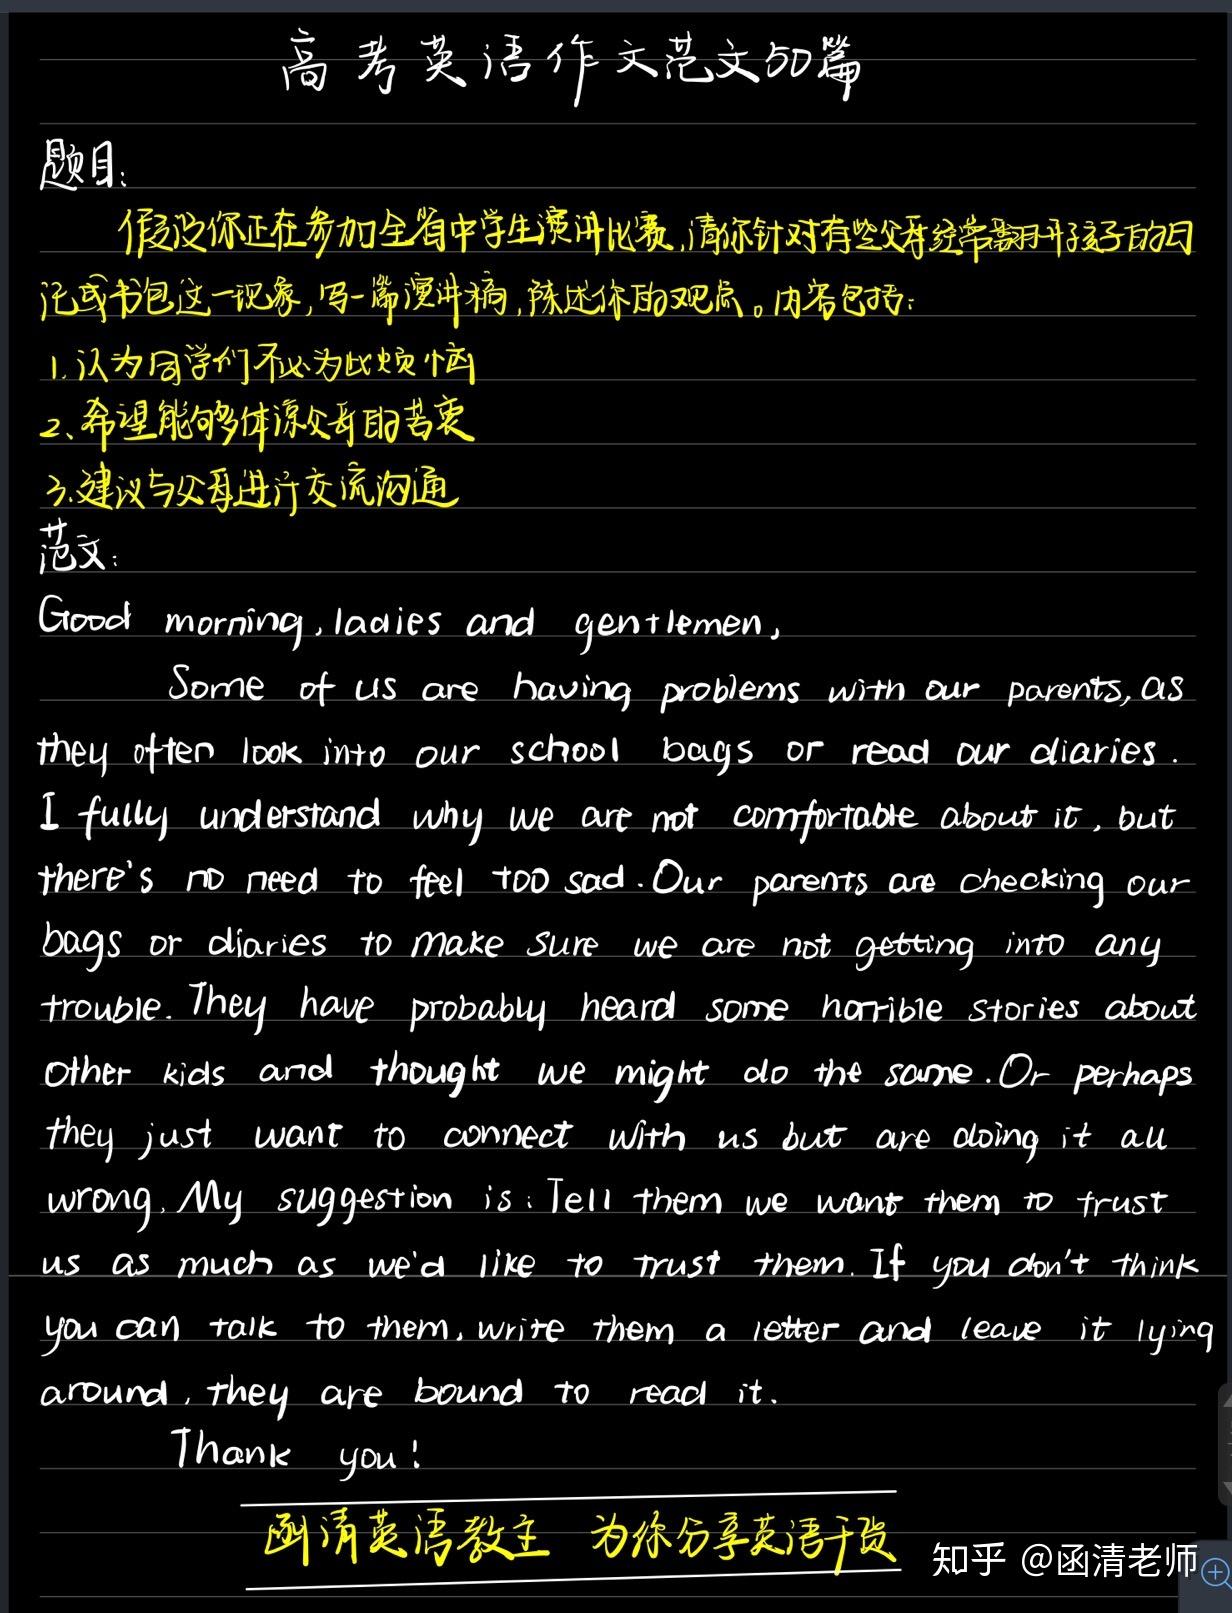 高考英语作文范文50篇
题目:
假设你正在参加全省中学生演讲比赛,请你针对有些父母经常翻开孩子的日
记或书包这一现象,写一篇演讲稿,陈述你的观点。内容包括:
1.认为同学们不必为此烦恼
2、希望能够多体谅父母的苦衷
3.建议与父母进行交流沟通
范文:
Good morning, ladies and gentlemen,
Some of us are having problems with our parents, as
they often look into our school bags or read our diaries.
I fully understand why we are not comfortable about it, but
there's no need to feel too sad. Our parents are checking our
bags or diaries to make sure we are not getting into any
trouble. They have probably heard some horrible stories about
other kids and thought we might do the same. Or perhaps
they just want to connect with us but are doing it all
wrong. My suggestion is: Tell them we want them to trust
us as much as we'd like to trust them. If you don't think
you can talk to them, write them a letter and leave it lying
around, they are bound to read it.
Thank you!
函清英语教主 为你分享英语干货
知乎 @函清老师